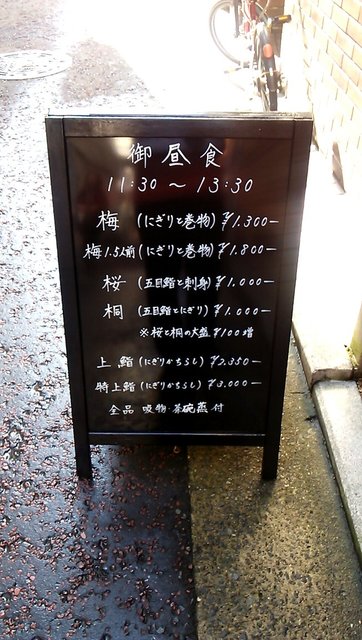 御昼食
11:30 〜 13:30
梅 (にぎりと巻物) ¥1.300-
梅1.5人前 (にぎりと巻物) ¥1.800-
桜 (五目鮨と刺身) ¥1.000-
桐 (五目鮨とにぎり) ¥1.000-
※桜と桐の大盛 ¥100増
上鮨 (にぎりかちらし) ¥2.350-
特上鮨 (にぎりかちらし) ¥3.000-
全品 吸物・茶碗蒸付